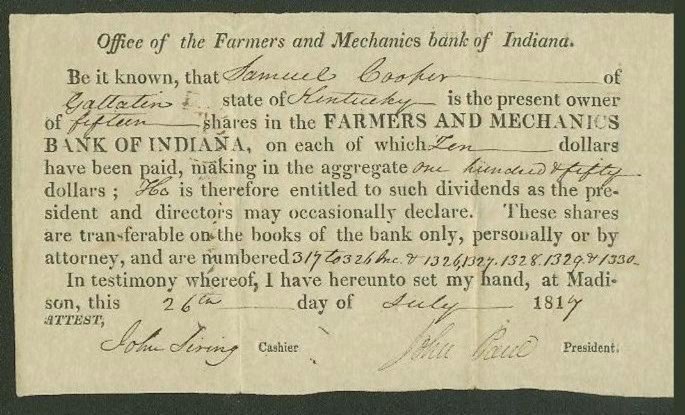 Office of the Farmers and Mechanics bank of Indiana.
Be it known, that Samuel Cooper of
Gallatin state of Kentucky is the present owner
of fifteen shares in the FARMERS AND MECHANICS
BANK OF INDIANA, on each of which Ten dollars
have been paid, making in the aggregate one hundred & fifty
dollars ; He is therefore entitled to such dividends as the pre-
sident and directors may occasionally declare. These shares
are transferable on the books of the bank only, personally or by
attorney, and are numbered 317 to 326 inc. & 1326, 1327, 1328, 1329 & 1330
In testimony whereof, I have hereunto set my hand, at Madi-
son, this 26th day of July 1817
ATTEST,
John Cashier John Paul President.